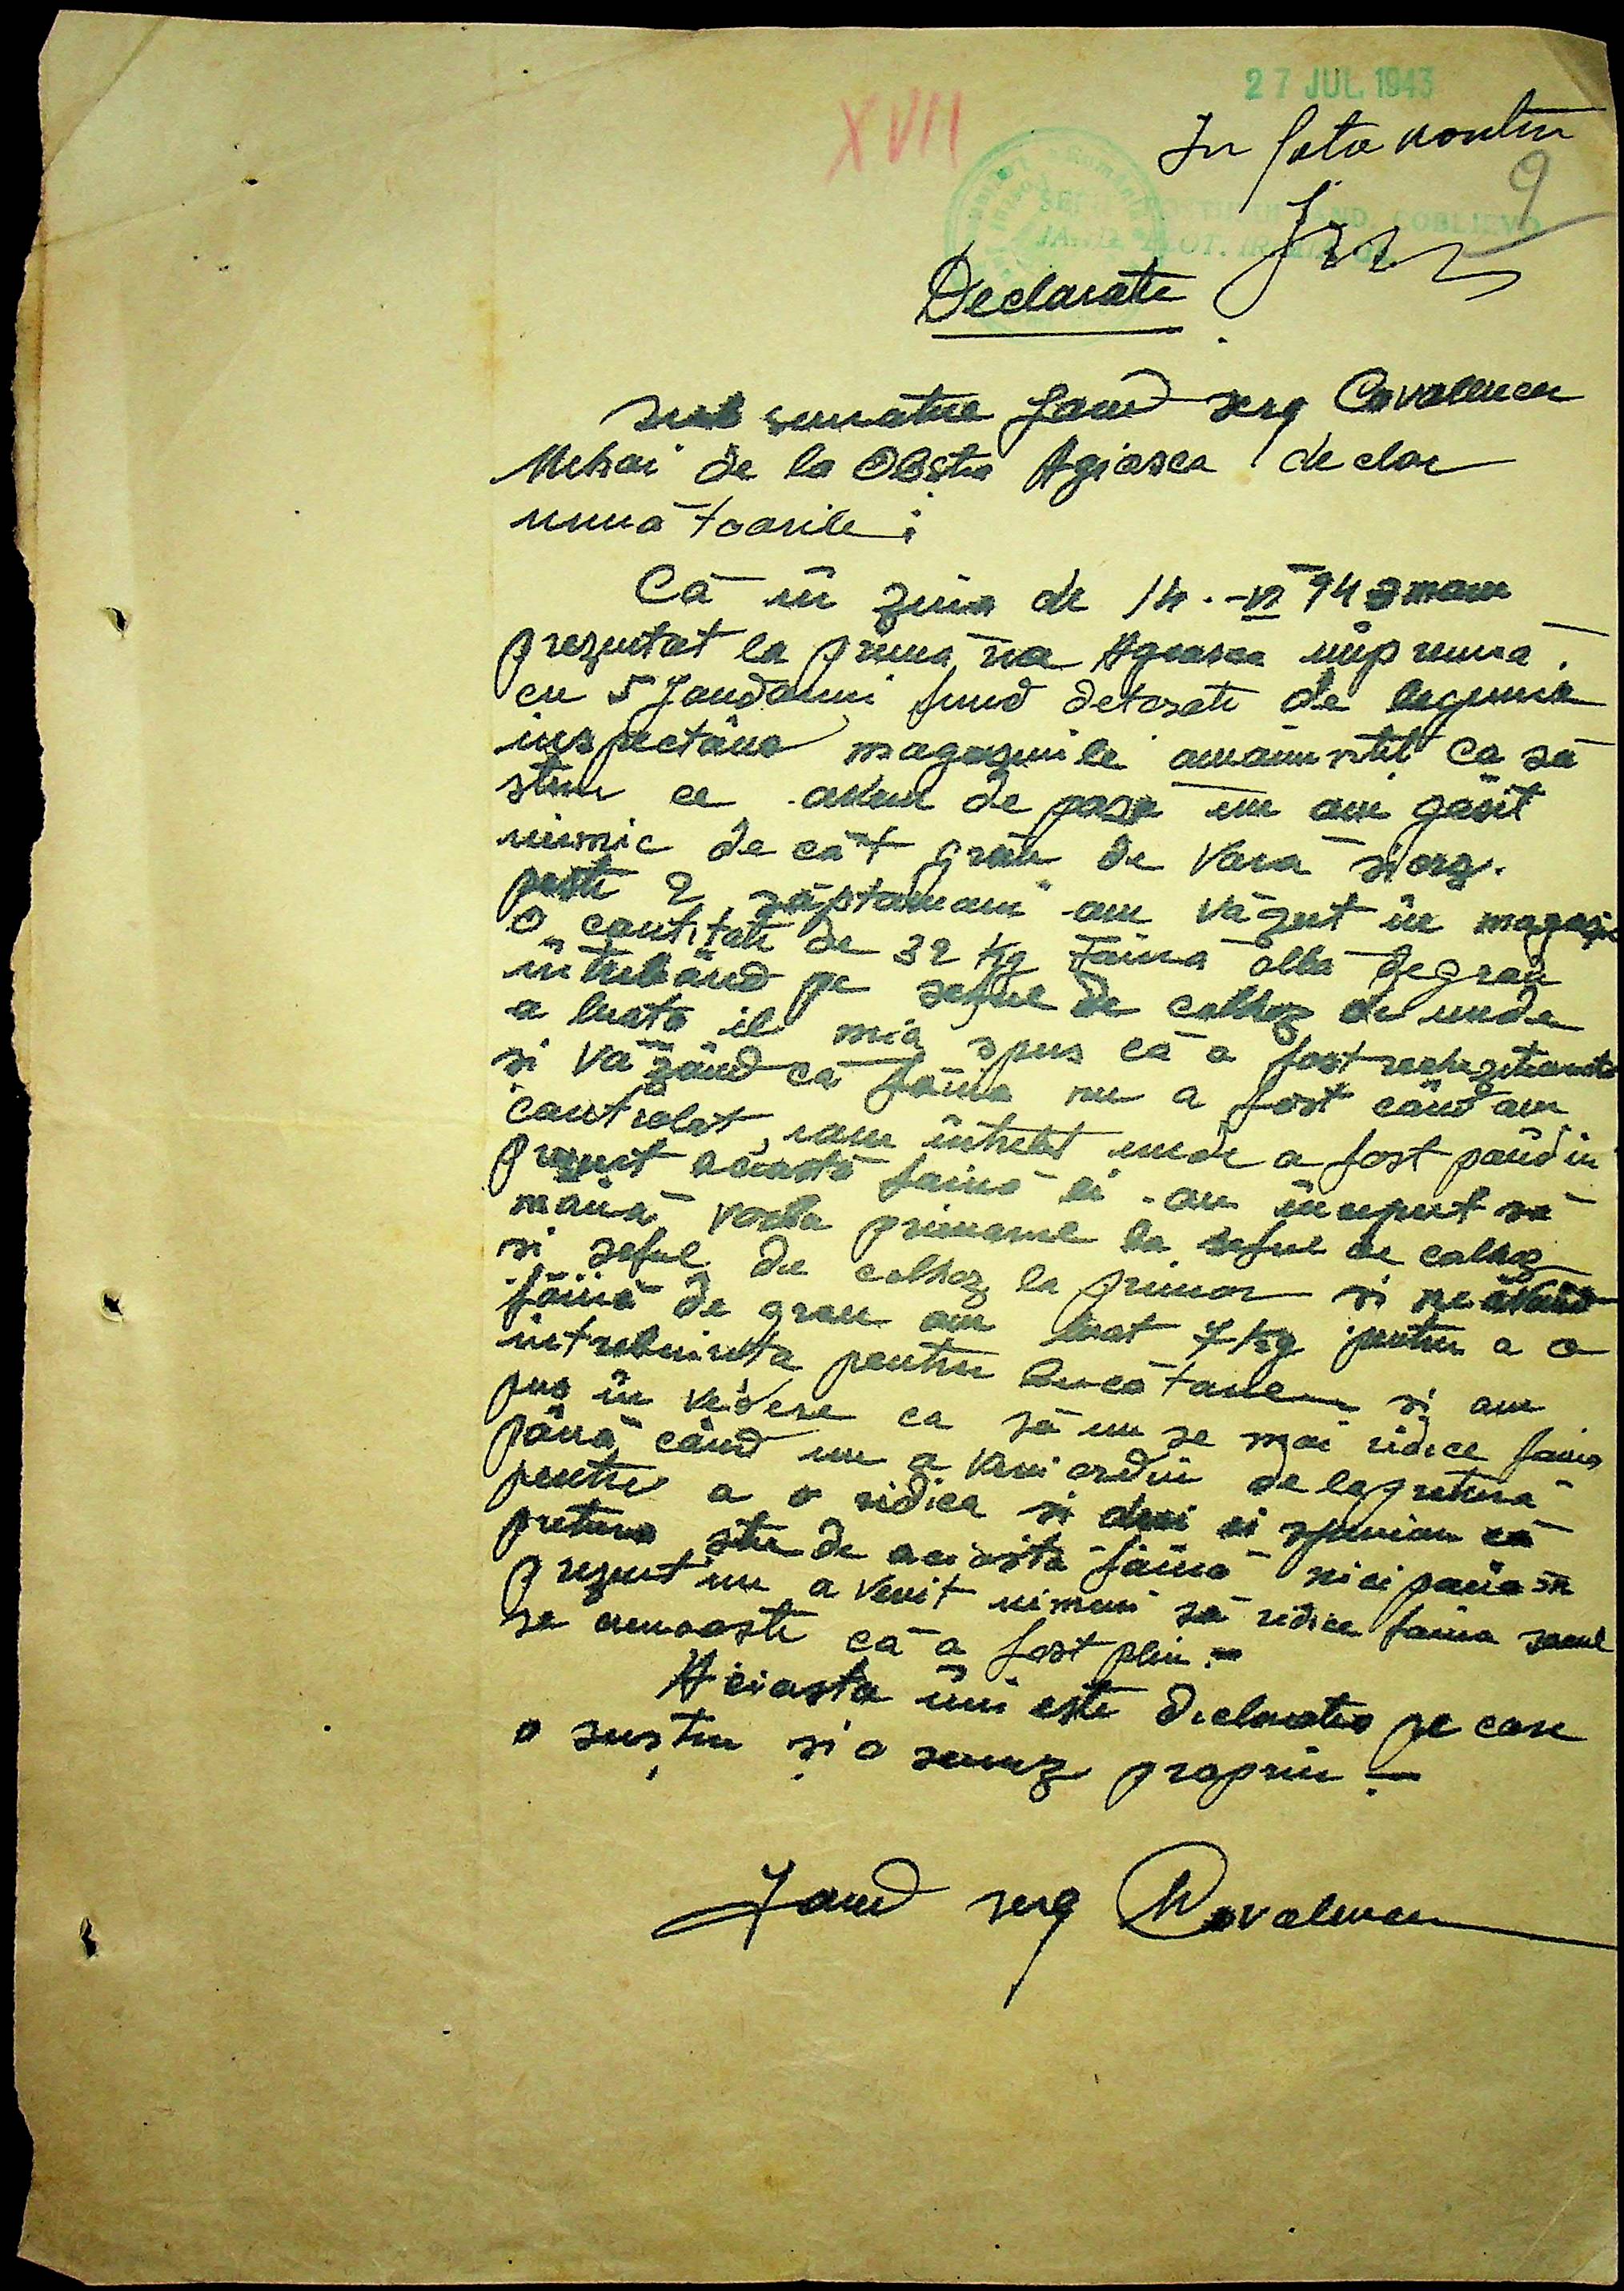 27 JUL. 1943
XVII
In fata noastra
9
Declaratie
sub semnatul Jand serg Covalencu
Mihai de la Obstia Agiasca declar
urmă toarile :
Că în ziua de 14.-VI 943 mam
prezentat la primă ria Agiasca împreună
cu 5 Jandarmi fiind detasati de legiune
inspectând magaziile amănuntit ca să
stim ce avem de pază nu am găsit
nimic de cât grâu de vară si orz.
peste 2 săptamani am văzut în magazie
o cantitate de 32 kg Faină albă de grau
întrebând pe seful de colhoz de unde
a luato el mia spus că a fost rechizitionata
si vă zând că făina nu a fost când am
controlat, iam întrebt unde a fost pănă in
prezent această faină ei au început să
mână vorba primarul la seful de colhoz
si seful de colhoz la primar si ne având
făină de grau am luat 7 kg pentru a o
intrebuinta pentru bucătarie si am
pus în vedere ca să nu se mai ridice faina
până când nu a veni ordin de la pretură
pentru a o ridica si ei spuniau că
pretura stie de aciastă faină nici pană in
prezent nu a venit nimeni să ridice faina sacul
se cunoaste că a fost plin.-
Aciasta îmi este declaratia pe care
o sustin și o semnez propriu.-
Jand serg Covalencu